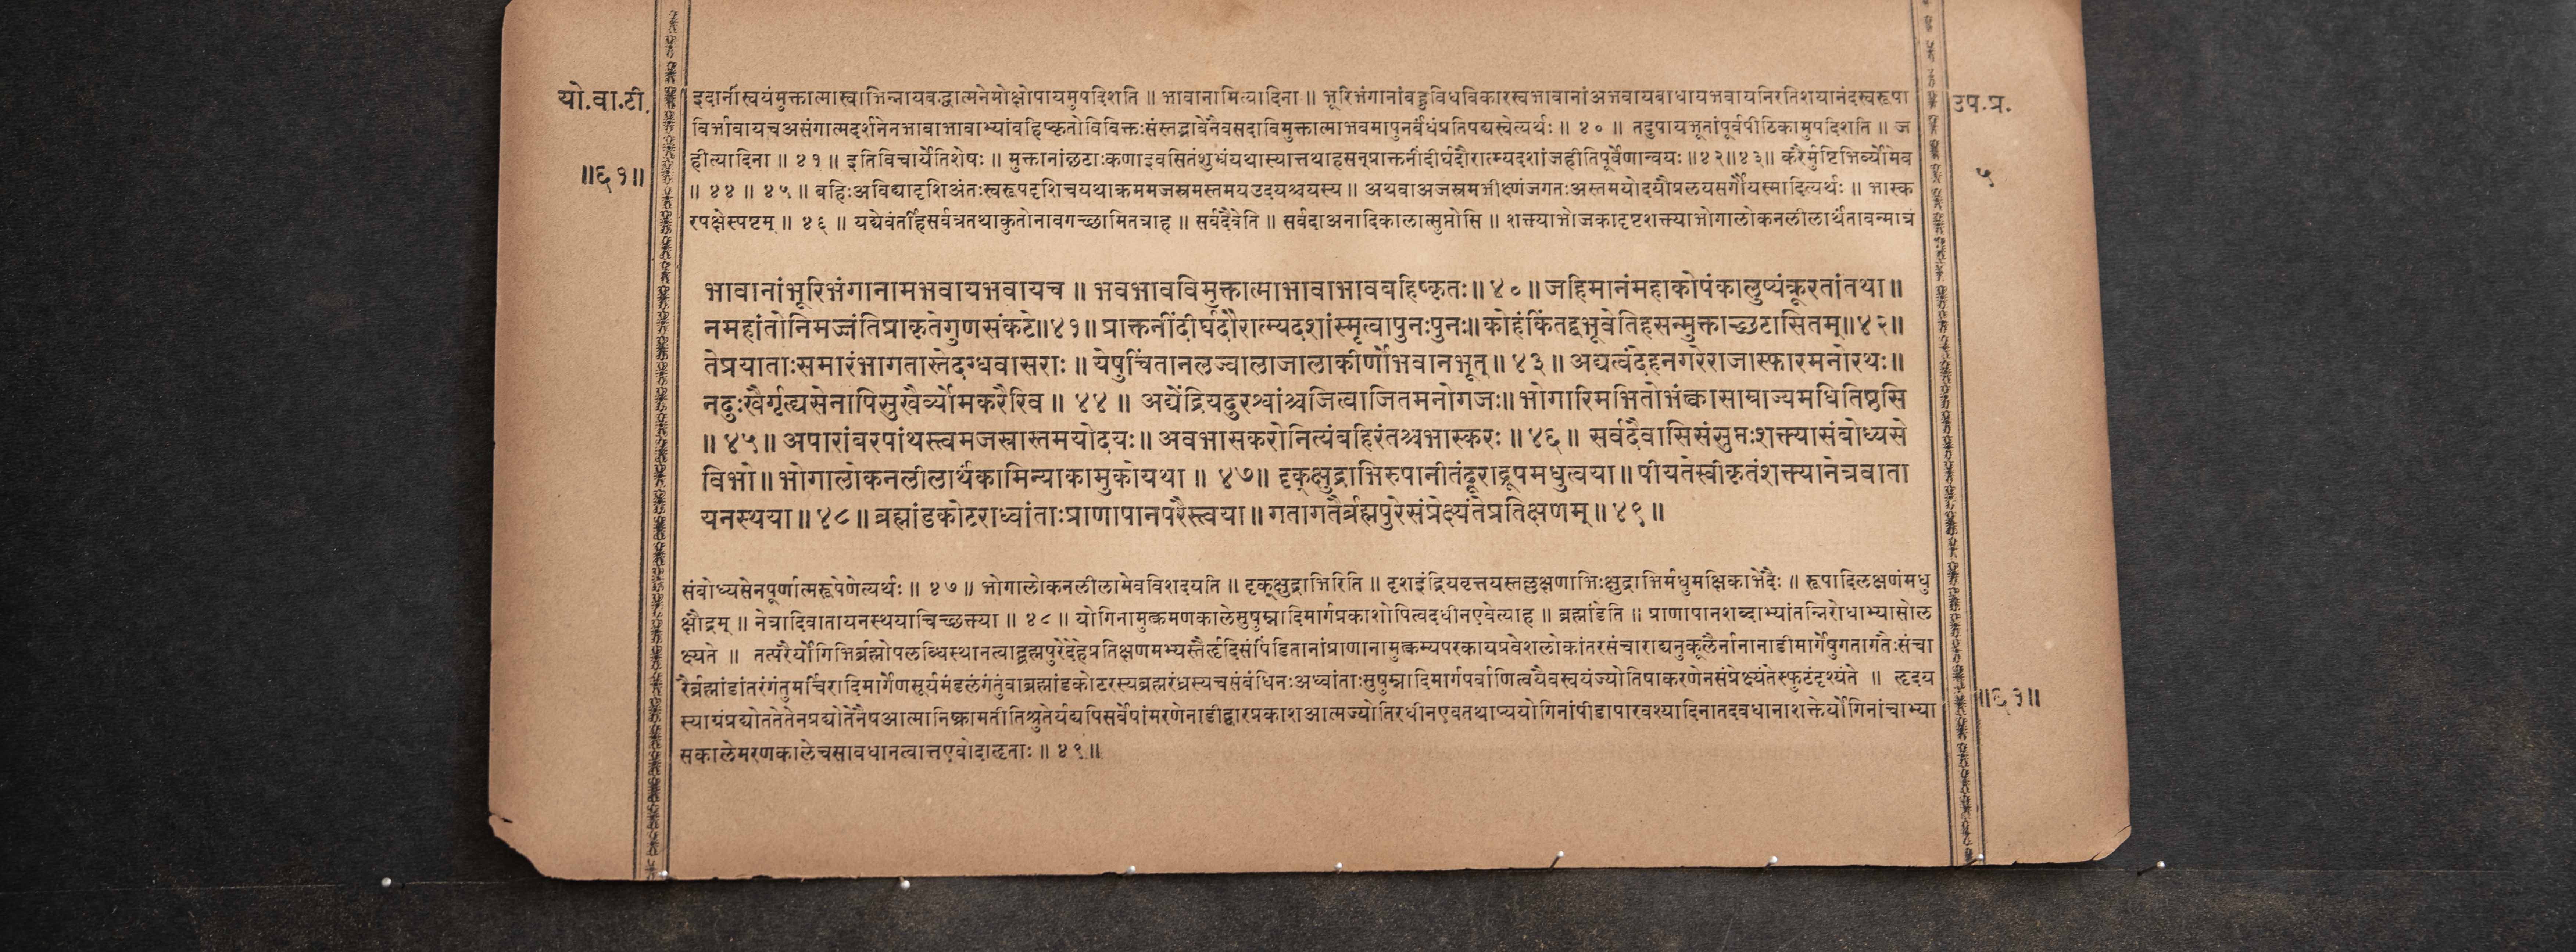 यो.वा.टी.
॥६१॥
उप.प्र.
५
इदानींस्वयंमुक्तात्मास्वाभिन्नायबद्धात्मनेमोक्षोपायमुपदिशति ॥ भावानामित्यादिना ॥ भूरिभंगानांबहुविधविकारस्वभावानांअभवायबाधायभवायनिरतिशयानंदस्वरूपा
विर्भावायचअसंगात्मदर्शनेनभावाभावाभ्यांबहिष्कृतोविविक्तःसंस्तद्भावेनैवसदाविमुक्तात्माभवमापुनर्बंधंप्रतिपद्यस्वेत्यर्थः ॥ ४० ॥ तदुपायभूतांपूर्वपीठिकामुपदिशति ॥ ज
हीत्यादिना ॥ ४१ ॥ इतिविचार्येतिशेषः ॥ मुक्तानांछटाःकणाइवसितंशुभंयथास्यात्तथाहसन्प्राक्तनींदीर्घदौरात्म्यदशांजहीतिपूर्वेणान्वयः ॥४२॥४३॥ करैर्मुष्टिभिर्व्योमेव
॥ ४४ ॥ ४५ ॥ बहिःअविद्यादृशिअंतःस्वरूपदृशिचयथाक्रममजस्रमस्तमयउदयश्चयस्य ॥ अथवाअजस्रमभीक्ष्णंजगतःअस्तमयोदयौप्रलयसर्गौयस्मादित्यर्थः ॥ भास्क
रपक्षेस्पष्टम् ॥ ४६ ॥ यद्येवंतर्हिसर्वत्रतथाकुतोनावगच्छामितत्राह ॥ सर्वदैवेति ॥ सर्वदाअनादिकालात्सुप्तोसि ॥ शक्त्याभोजकादृष्टशक्त्याभोगालोकनलीलार्थंतावन्मात्रं
भावानांभूरिभंगानामभवायभवायच ॥ भवभावविमुक्तात्माभावाभावबहिष्कृतः ॥ ४० ॥ जहिमानंमहाकोपंकालुष्यंक्रूरतांतथा ॥
नमहांतोनिमज्जंतिप्राकृतेगुणसंकटे॥४१॥ प्राक्तनींदीर्घदौरात्म्यदशांस्मृत्वापुनःपुनः॥ कोहंकिंतद्बभूवेतिहसन्मुक्ताच्छटासितम्॥४२॥
तेप्रयाताःसमारंभागतास्तेदग्धवासराः ॥ येषुचिंतानलज्वालाजालाकीर्णोभवानभूत् ॥ ४३ ॥ अद्यत्वंदेहनगरेराजास्फारमनोरथः ॥
नदुःखैर्गृह्यसेनापिसुखैर्व्योमकरैरिव ॥ ४४ ॥ अद्येंद्रियदुरश्वांश्चजित्वाजितमनोगजः॥ भोगारिमभितोभंक्त्वासाम्राज्यमधितिष्ठसि
॥ ४५ ॥ अपारांबरपांथस्त्वमजस्रास्तमयोदयः ॥ अवभासकरोनित्यंबहिरंतश्चभास्करः ॥ ४६ ॥ सर्वदैवासिसंसुप्तःशक्त्यासंबोध्यसे
विभो ॥ भोगालोकनलीलार्थंकामिन्याकामुकोयथा ॥ ४७॥ दृक्क्षुद्राभिरुपानीतंदूराद्रूपमधुत्वया ॥ पीयतेस्वीकृतंशक्त्यानेत्रवाता
यनस्थया ॥ ४८ ॥ ब्रह्मांडकोटराध्वांताःप्राणापानपरैस्त्वया ॥ गतागतैर्ब्रह्मपुरेसंप्रेक्ष्यंतेप्रतिक्षणम् ॥ ४९ ॥
संबोध्यसेनपूर्णात्मरूपेणेत्यर्थः ॥ ४७ ॥ भोगालोकनलीलामेवविशदयति ॥ दृक्क्षुद्राभिरिति ॥ दृशइंद्रियवृत्तयस्तल्लक्षणाभिःक्षुद्राभिर्मधुमक्षिकाभेदैः ॥ रूपादिलक्षणंमधु
क्षौद्रम् ॥ नेत्रादिवातायनस्थयाचिच्छक्त्या ॥ ४८ ॥ योगिनामुत्क्रमणकालेसुषुम्नादिमार्गप्रकाशोपित्वदधीनएवेत्याह ॥ ब्रह्मांडेति ॥ प्राणापानशब्दाभ्यांतन्निरोधाभ्यासोल
क्ष्यते ॥ तत्परैर्योगिभिर्ब्रह्मोपलब्धिस्थानत्वाद्ब्रह्मपुरेदेहेप्रतिक्षणमभ्यस्तैर्हृदिसंपिंडितानांप्राणानामुत्क्रम्यपरकायप्रवेशलोकांतरसंचाराद्यनुकूलैर्नानानाडीमार्गेषुगतागतैःसंचा
रैर्ब्रह्मांडांतरंगंतुमर्चिरादिमार्गेणसूर्यमंडलंगंतुंवाब्रह्मांडकोटरस्यब्रह्मरंध्रस्यचसंबंधिनःअध्वांताःसुषुम्नादिमार्गपर्वाणित्वयैवस्वयंज्योतिषाकरणेनसंप्रेक्ष्यंतेस्फुटंदृश्यंते ॥ हृदय
स्याग्रंप्रद्योततेतेनप्रद्योतेनैषआत्मानिष्क्रामतीतिश्रुतेर्यद्यपिसर्वेषांमरणेनाडीद्वारप्रकाशआत्मज्योतिरधीनएवतथाप्ययोगिनांपीडापारवश्यादिनातदवधानाशक्तेर्योगिनांचाभ्या
सकालेमरणकालेचसावधानत्वात्तएवोदाहृताः ॥ ४९ ॥
॥६१॥